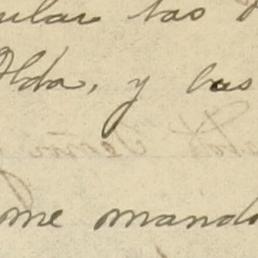 ular las
Olda, y las
me mando